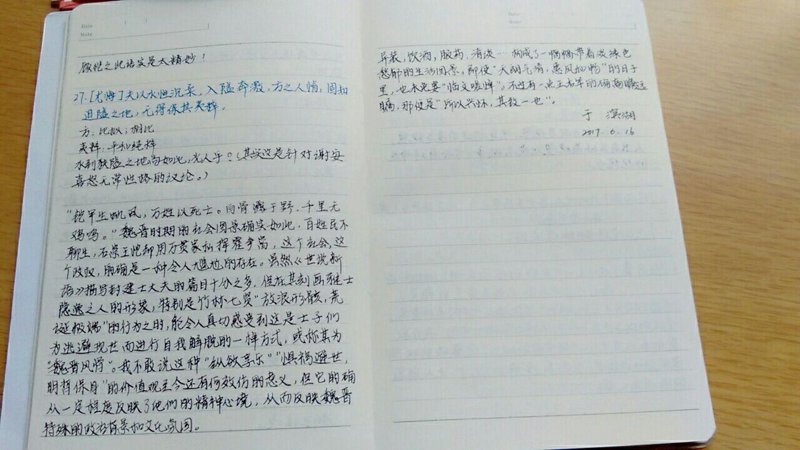 殷浩之此语实是太精妙！
27.[尤悔]夫以水性沉柔，入隘奔激，方之人情，固知
迫隘之地，无得保其夷粹。
方：比拟，相比
夷粹：平和纯粹
水到狭隘之地尚如此，况人乎？（其实这是针对谢安
喜怒无常性格的议论。）
“铠甲生虮虱，万姓以死亡。白骨露于野，千里无
鸡鸣。”魏晋时期的社会图景确实如此，百姓民不
聊生，石崇王恺却用万贯家私挥霍争富，这个社会，这
个政权，的确是一种令人尴尬的存在。虽然《世说新
语》描写封建士大夫的篇目十分之多，但在其刻画雅士
隐逸之人的形象，特别是竹林七贤“放浪形骸，荒
诞极端”的行为之时，能令人真切感受到这是士子们
为逃避现世而进行自我解脱的一种方式，或称其为
“魏晋风骨”。我不敢说这种“纵欲享乐”“惧祸避世，
明哲保身”的价值观至今还有何效仿的意义，但它的确
从一定程度反映了他们的精神心境，从而反映魏晋
特殊的政治背景和文化氛围。
异装，饮酒，服药，清谈……构成了一幅幅带着灰绿色
愁郁的生活图景。即使“天朗气清，惠风和畅”的日子
里，也未免要“临文嗟悼”。不过有一点主
瞩，那便是“所以兴怀，其致一也”。
于
2017.6.16